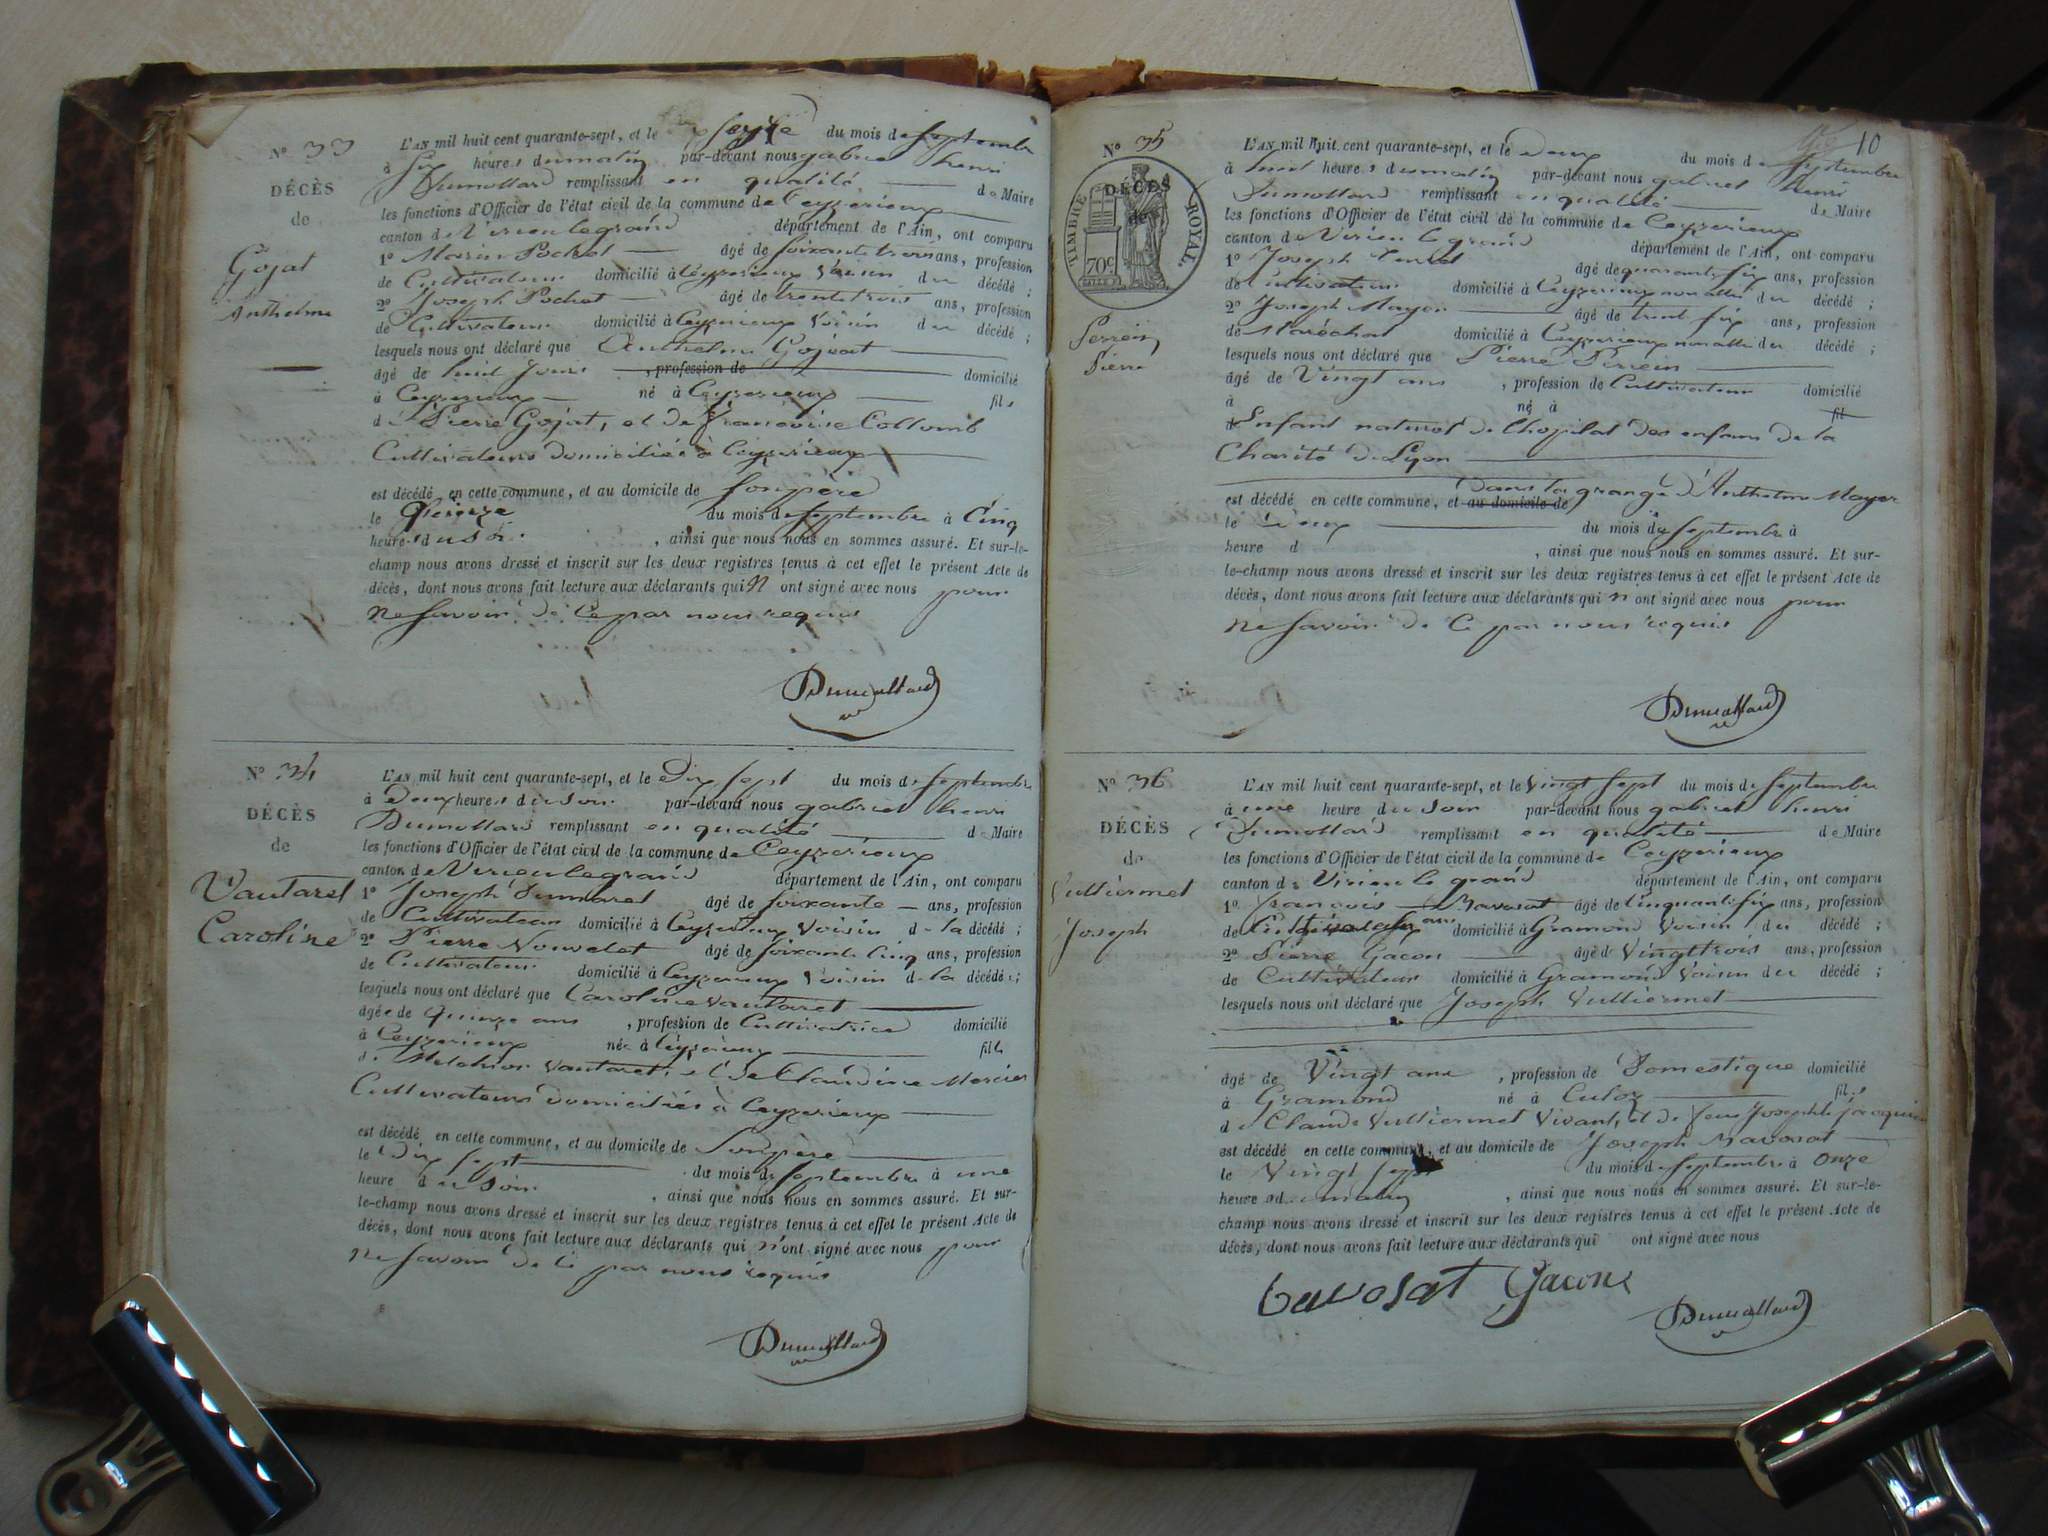 N° 33
DÉCÈS
de
Gojat
Anthelme
L'AN mil huit cent quarante-sept, et le seize du mois de Septembre
à six heures du matin par-devant nous gabriel henri
Dumollard remplissant en qualité de Maire
les fonctions d'Officier de l'état civil de la commune de Ceyzerieux
canton de Virieu le grand département de l'Ain, ont comparu
1° Marin Pochet âgé de soixante trois ans, profession
de Cultivateur domicilié à Ceyzerieux Voisin du décédé ;
2° Joseph Pochet âgé de trente trois ans, profession
de Cultivateur domicilié à Ceyzerieux Voisin du décédé ;
lesquels nous ont déclaré que Anthelme Gojat
âgé de huit Jours , profession de domicilié
à Ceyzerieux né à Ceyzerieux fils
de Pierre Gojat, et de Françoise Collomb
Cultivateurs domiciliés à Ceyzerieux
est décédé en cette commune, et au domicile de son père
le Quinze du mois de Septembre à Cinq
heures du soir , ainsi que nous nous en sommes assuré. Et sur-le-
champ nous avons dressé et inscrit sur les deux registres tenus à cet effet le présent Acte de
décès, dont nous avons fait lecture aux déclarants qui n ont signé avec nous pour
ne savoir de Ce par nous requis
Dumollard
N° 34
DÉCÈS
de
Vautaret
Caroline
L'AN mil huit cent quarante-sept, et le Dix sept du mois de Septembre
à Deux heures du soir par-devant nous gabriel henri
Dumollard remplissant en qualité de Maire
les fonctions d'Officier de l'état civil de la commune de Ceyzerieux
canton de Virieu le grand département de l'Ain, ont comparu
1° Joseph Dumarest âgé de soixante ans, profession
de Cultivateur domicilié à Ceyzerieux Voisin de la décédée ;
2° Pierre Nouvelet âgé de soixante Cinq ans, profession
de Cultivateur domicilié à Ceyzerieux Voisin de la décédée ;
lesquels nous ont déclaré que Caroline Vautaret
âgée de Quinze ans , profession de Cultivatrice domicilié
à Ceyzerieux née à Ceyzerieux fille
de Melchior Vautaret, et de Claudine Mercier
Cultivateurs domiciliés à Ceyzerieux
est décédé en cette commune, et au domicile de Son père
le Dix sept du mois de Septembre à une
heure du soir , ainsi que nous nous en sommes assuré. Et sur-
le-champ nous avons dressé et inscrit sur les deux registres tenus à cet effet le présent Acte de
décès, dont nous avons fait lecture aux déclarants qui n'ont signé avec nous pour
ne savoir de Ce par nous requis
Dumollard
10
N° 35
DÉCÈS
de
TIMBRE ROYAL.
70c
Perrein
Pierre
L'AN mil huit cent quarante-sept, et le Deux du mois de Septembre
à huit heures du matin par-devant nous gabriel henri
Dumollard remplissant en qualité de Maire
les fonctions d'Officier de l'état civil de la commune de Ceyzerieux
canton de Virieu le grand département de l'Ain, ont comparu
1° Joseph âgé de quarante six ans, profession
de Cultivateur domicilié à Ceyzerieux non allié du décédé ;
2° Joseph Mayer âgé de trente six ans, profession
de Maréchal domicilié à Ceyzerieux non allié du décédé ;
lesquels nous ont déclaré que Pierre Perrein
âgé de Vingt ans , profession de Cultivateur domicilié
à né à fil
d Enfant naturel de l'hopital des enfans de la
Charité de Lyon
Dans la grange d'Anthelme Mayer
est décédé en cette commune, et au domicile de
le Deux du mois de Septembre à
heure d , ainsi que nous nous en sommes assuré. Et sur-
le-champ nous avons dressé et inscrit sur les deux registres tenus à cet effet le présent Acte de
décès, dont nous avons fait lecture aux déclarants qui n ont signé avec nous pour
ne savoir de Ce par nous requis
Dumollard
N° 36
DÉCÈS
de
Vulliermet
Joseph
L'AN mil huit cent quarante-sept, et le Vingt sept du mois de Septembre
à une heure du soir par-devant nous gabriel henri
Dumollard remplissant en qualité de Maire
les fonctions d'Officier de l'état civil de la commune de Ceyzerieux
canton de Virieu le grand département de l'Ain, ont comparu
1° François Ravosat âgé de Cinquante six ans, profession
de Cultivateur domicilié à Gramond Voisin du décédé ;
2° Pierre Gacon âgé de Vingt trois ans, profession
de Cultivateur domicilié à Gramond Voisin du décédé ;
lesquels nous ont déclaré que Joseph Vulliermet
âgé de Vingt ans , profession de Domestique domicilié
à Gramond né à Culoz fils
de Claude Vulliermet Vivant, et de feue Josephte Jacquin
est décédé en cette commune, et au domicile de Joseph Ravosat
le Vingt sept du mois de Septembre à Onze
heures du matin , ainsi que nous nous en sommes assuré. Et sur-le-
champ nous avons dressé et inscrit sur les deux registres tenus à cet effet le présent Acte de
décès, dont nous avons fait lecture aux déclarants qui ont signé avec nous
Ravosat Gacon
Dumollard